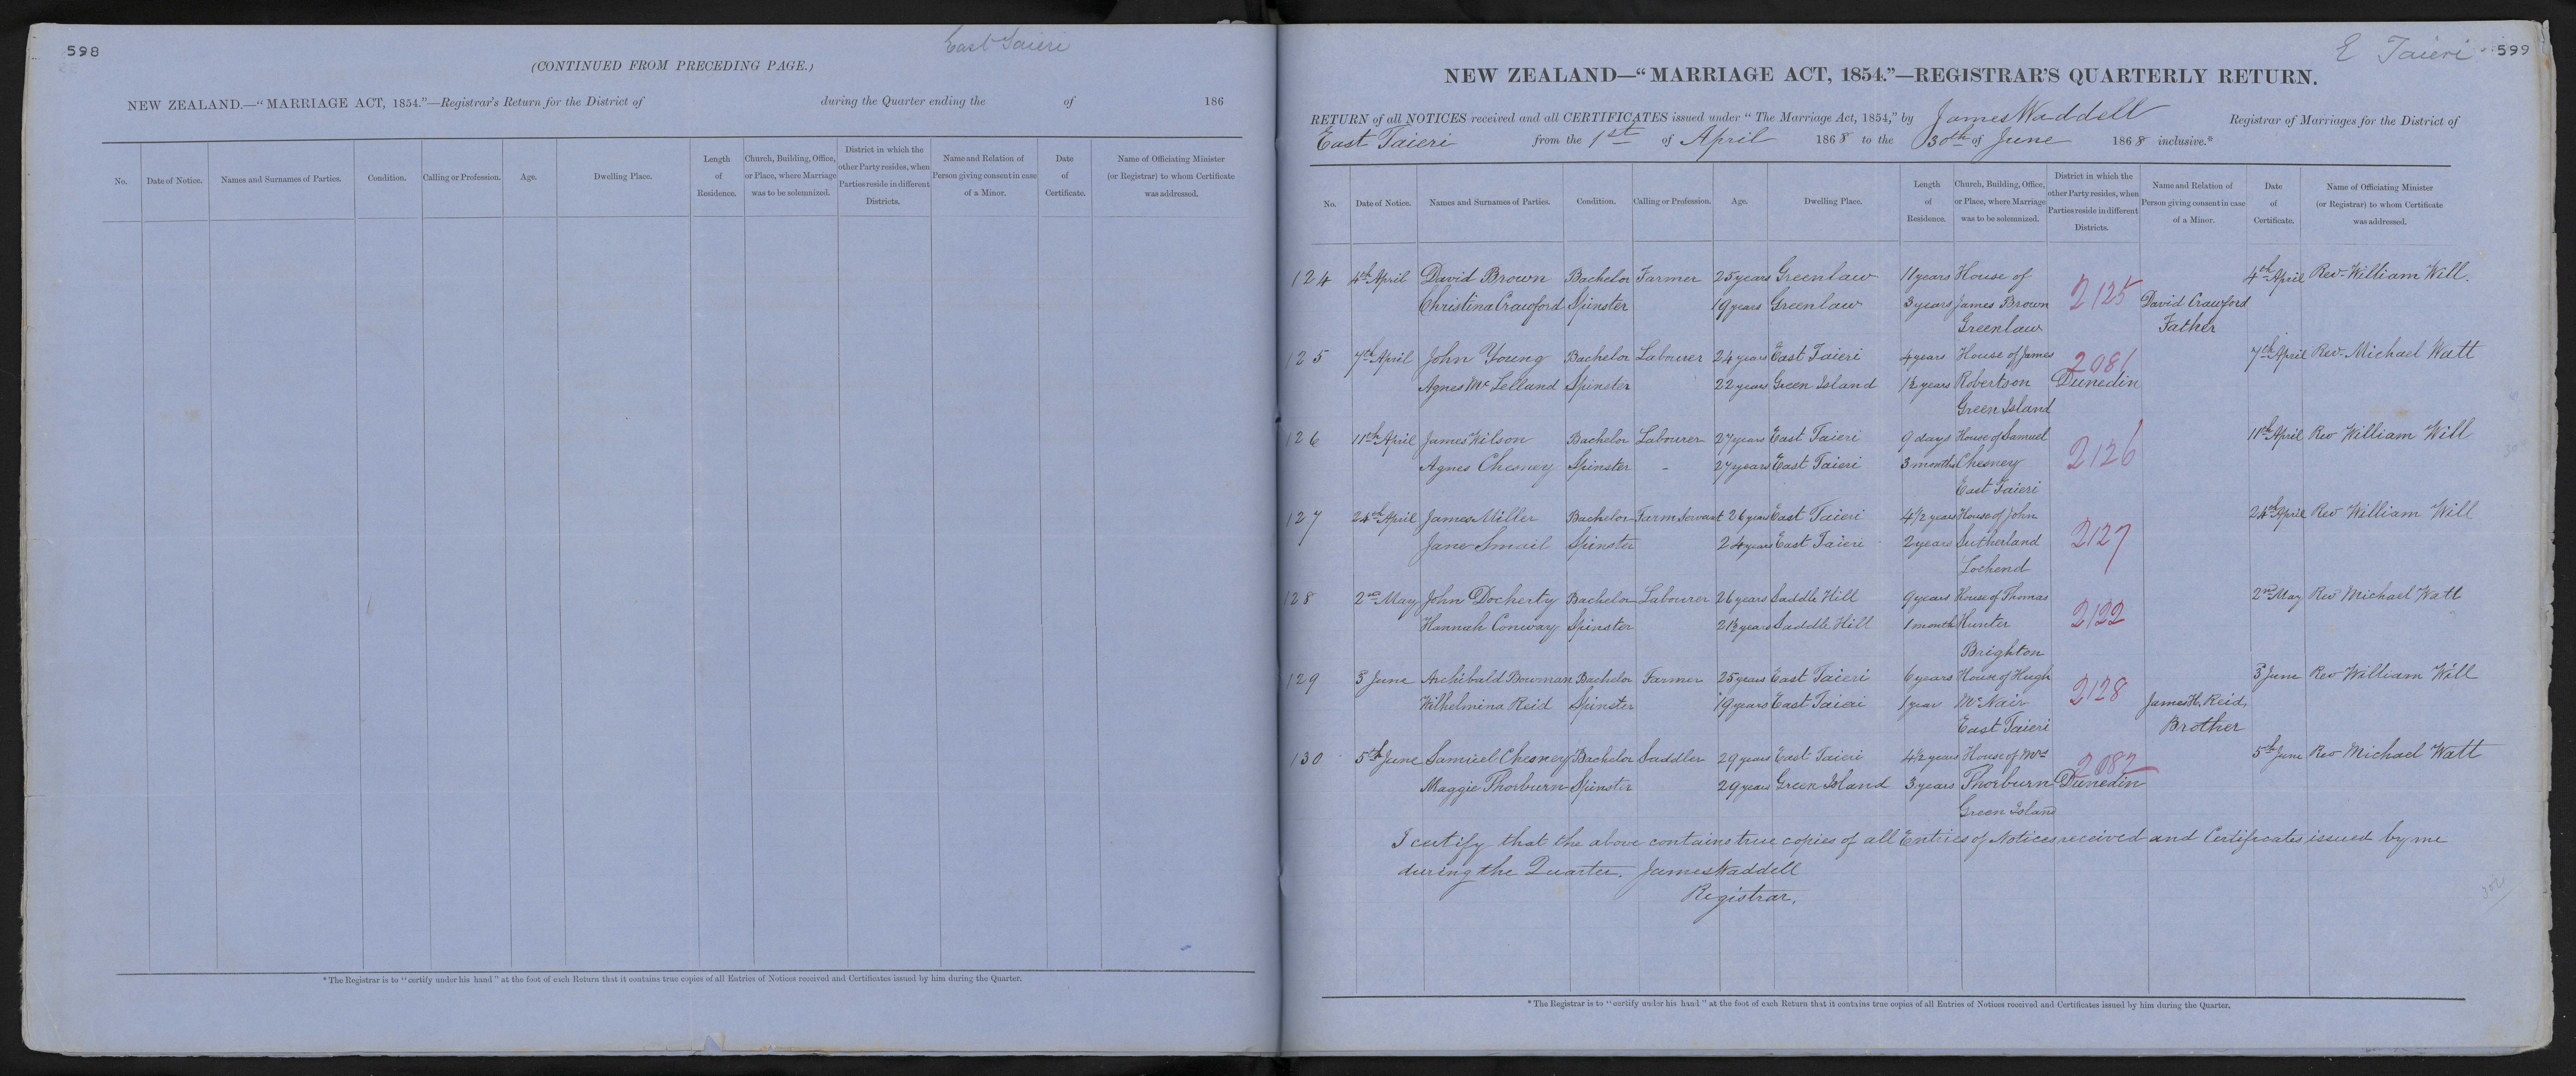 598
East Taieri
(CONTINUED FROM PRECEDING PAGE.)
NEW ZEALAND.—"MARRIAGE ACT, 1854."—Registrar's Return for the District of during the Quarter ending the of 186
No. Date of Notice. Names and Surnames of Parties. Condition. Calling or Profession. Age. Dwelling Place. Length of Residence. Church, Building, Office, or Place, where Marriage was to be solemnized. District in which the other Party resides, when Parties reside in different Districts. Name and Relation of Person giving consent in case of a Minor. Date of Certificate. Name of Officiating Minister (or Registrar) to whom Certificate was addressed.
* The Registrar is to "certify under his hand" at the foot of each Return that it contains true copies of all Entries of Notices received and Certificates issued by him during the Quarter.
E Taieri 599
NEW ZEALAND—"MARRIAGE ACT, 1854."—REGISTRAR'S QUARTERLY RETURN.
RETURN of all NOTICES received and all CERTIFICATES issued under "The Marriage Act, 1854," by James Waddell Registrar of Marriages for the District of
East Taieri from the 1st of April 1868 to the 30th of June 1868 inclusive.*
No. Date of Notice. Names and Surnames of Parties. Condition. Calling or Profession. Age. Dwelling Place. Length of Residence. Church, Building, Office, or Place, where Marriage was to be solemnized. District in which the other Party resides, when Parties reside in different Districts. Name and Relation of Person giving consent in case of a Minor. Date of Certificate. Name of Officiating Minister (or Registrar) to whom Certificate was addressed.
124 4th April David Brown Bachelor Farmer 25 years Greenlaw 11 years House of 2125 4th April Rev. William Will.
Christina Crawford Spinster 19 years Greenlaw 3 years James Brown David Crawford
Greenlaw Father
125 7th April John Young Bachelor Labourer 24 years East Taieri 4 years House of James 2081 7th April Rev. Michael Watt
Agnes McLelland Spinster 22 years Green Island 1½ years Robertson Dunedin
Green Island
126 11th April James Wilson Bachelor Labourer 27 years East Taieri 9 days House of Samuel 2126 11th April Rev William Will
Agnes Chesney Spinster - 27 years East Taieri 3 months Chesney
East Taieri
127 24th April James Miller Bachelor Farm Servant 26 years East Taieri 4½ years House of John 2127 24th April Rev William Will
Jane Smail Spinster 24 years East Taieri 2 years Sutherland
Lochend
128 2nd May John Docherty Bachelor Labourer 26 years Saddle Hill 9 years House of Thomas 2122 2nd May Rev Michael Watt
Hannah Conway Spinster 21½ years Saddle Hill 1 month Hunter
Brighton
129 3 June Archibald Bowman Bachelor Farmer 25 years East Taieri 6 years House of Hugh 2128 3 June Rev William Will
Wilhelmina Reid Spinster 19 years East Taieri 1 year McNair James H. Reid,
East Taieri Brother
130 5th June Samuel Chesney Bachelor Saddler 29 years East Taieri 4½ years House of Mrs 2082 5th June Rev Michael Watt
Maggie Thorburn Spinster 29 years Green Island 3 years Thorburn Dunedin
Green Island
I certify that the above contains true copies of all Entries of Notices received and Certificates issued by me
during the Quarter. James Waddell
Registrar.
* The Registrar is to "certify under his hand" at the foot of each Return that it contains true copies of all Entries of Notices received and Certificates issued by him during the Quarter.